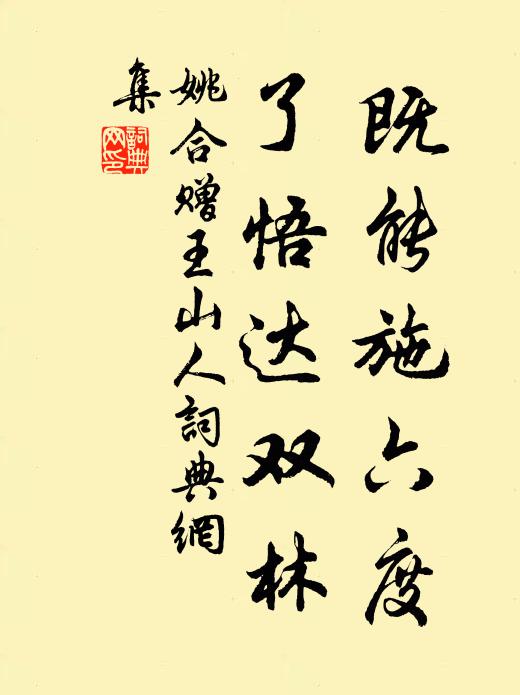 既能施六度
了悟达双林
姚合赠王山人詞典網
集
詞典
网印